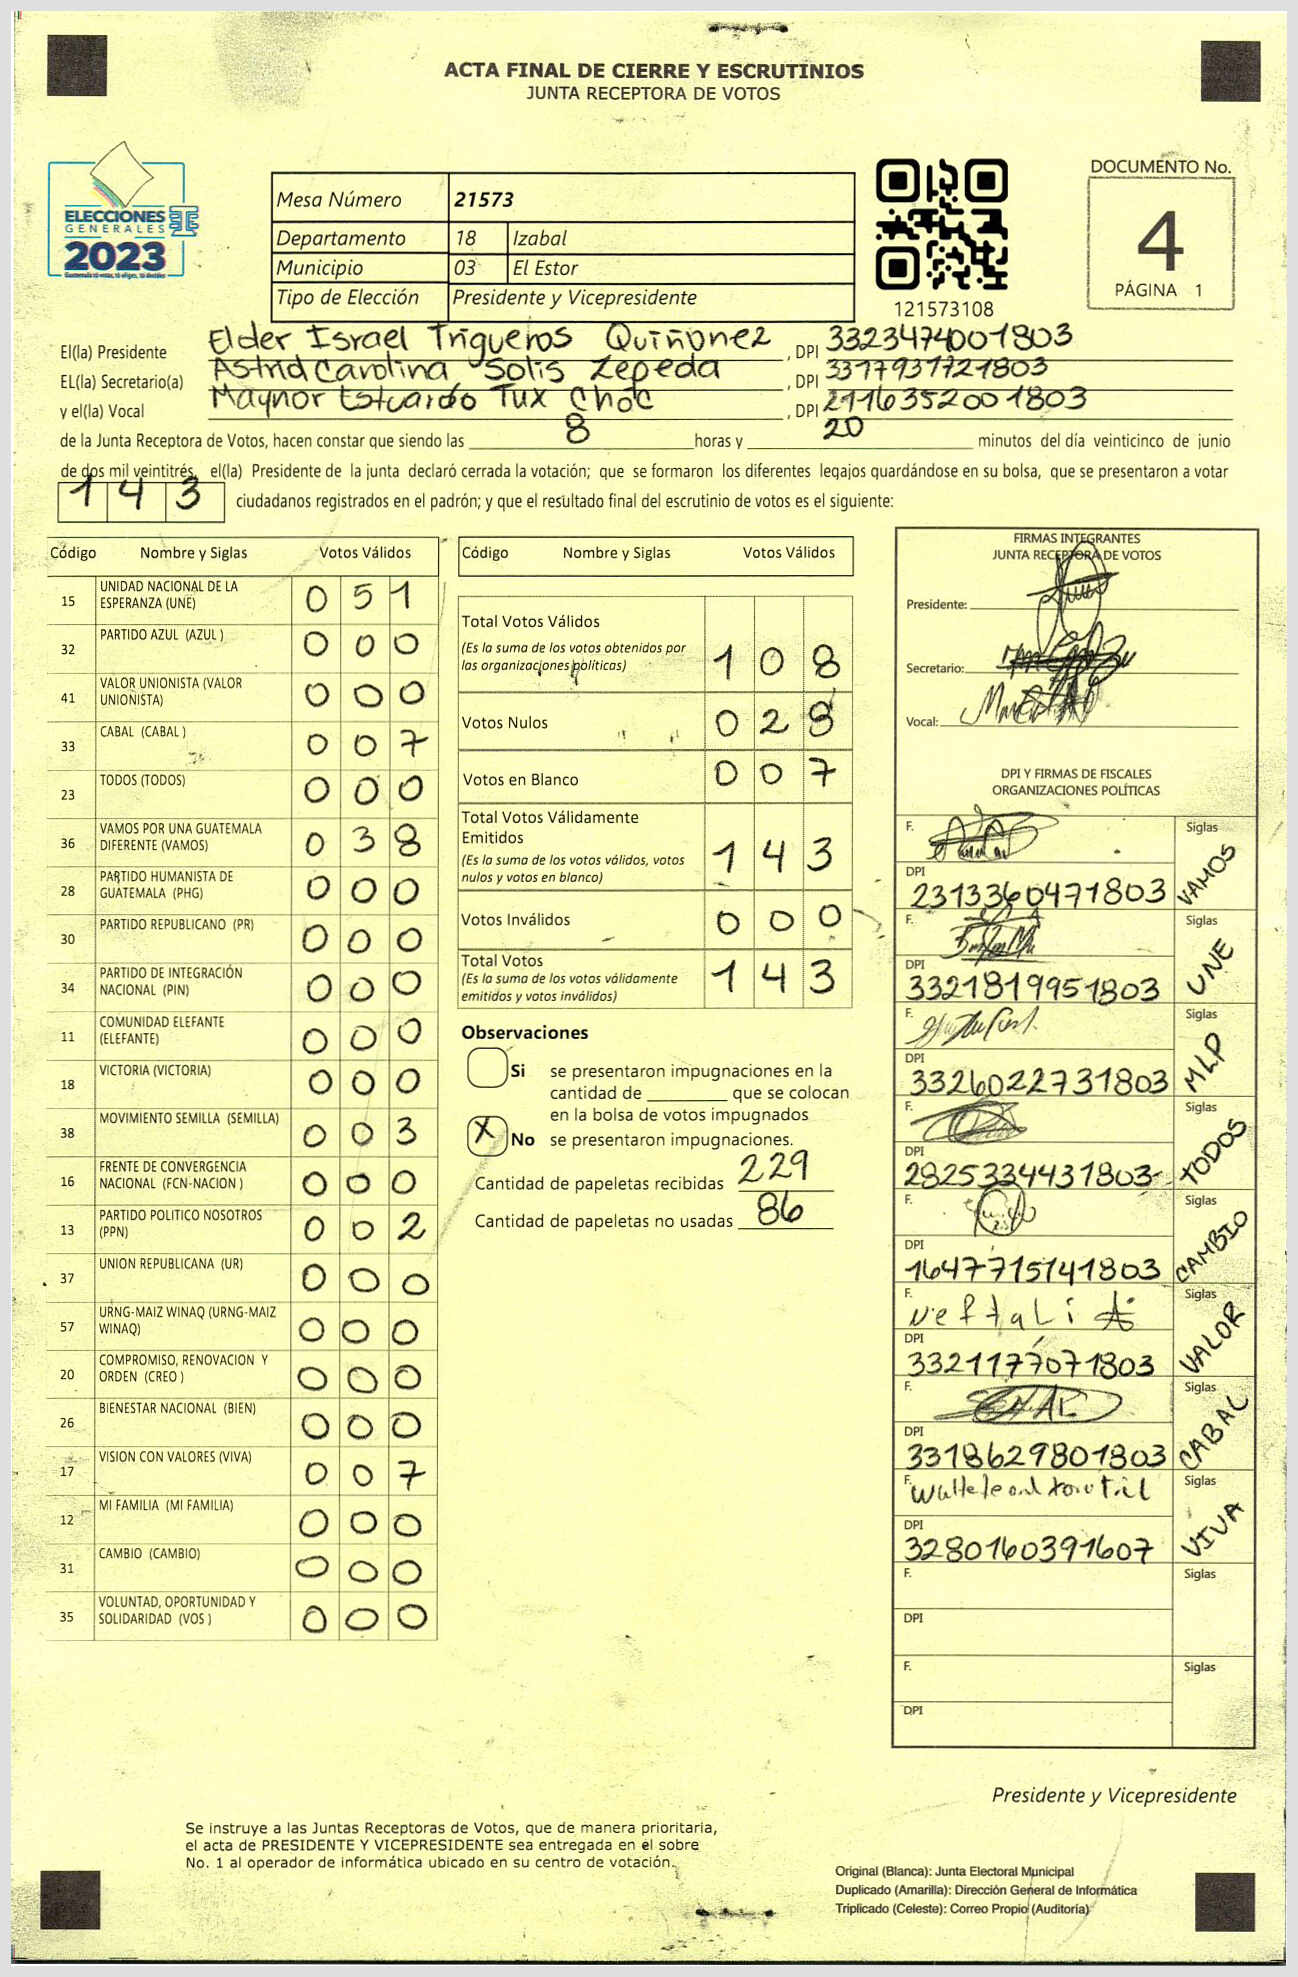 ACTA FINAL DE CIERRE Y ESCRUTINIOS
JUNTA RECEPTORA DE VOTOS
ELECCIONES
GENERALES
2023
Mesa Número 21573
Departamento 18 Izabal
Municipio 03 El Estor
Tipo de Elección Presidente y Vicepresidente
121573108
DOCUMENTO No.
4
PÁGINA 1
El(la) Presidente Elder Israel Trigueros Quiñonez , DPI 3323474001803
EL(la) Secretario(a) Astrid Carolina Solis Zepeda , DPI 3377937721803
y el(la) Vocal Maynor Estuardo Tux Choc , DPI 2116352001803
de la Junta Receptora de Votos, hacen constar que siendo las 8 horas y 20 minutos del día veinticinco de junio
de dos mil veintitrés, el(la) Presidente de la junta declaró cerrada la votación; que se formaron los diferentes legajos guardándose en su bolsa, que se presentaron a votar
143 ciudadanos registrados en el padrón; y que el resultado final del escrutinio de votos es el siguiente:
Código Nombre y Siglas Votos Válidos
15 UNIDAD NACIONAL DE LA
ESPERANZA (UNE) 0 5 1
32 PARTIDO AZUL (AZUL ) 0 0 0
41 VALOR UNIONISTA (VALOR
UNIONISTA) 0 0 0
33 CABAL (CABAL ) 0 0 7
23 TODOS (TODOS) 0 0 0
36 VAMOS POR UNA GUATEMALA
DIFERENTE (VAMOS) 0 3 8
28 PARTIDO HUMANISTA DE
GUATEMALA (PHG) 0 0 0
30 PARTIDO REPUBLICANO (PR) 0 0 0
34 PARTIDO DE INTEGRACIÓN
NACIONAL (PIN) 0 0 0
11 COMUNIDAD ELEFANTE
(ELEFANTE) 0 0 0
18 VICTORIA (VICTORIA) 0 0 0
38 MOVIMIENTO SEMILLA (SEMILLA) 0 0 3
16 FRENTE DE CONVERGENCIA
NACIONAL (FCN-NACION ) 0 0 0
13 PARTIDO POLITICO NOSOTROS
(PPN) 0 0 2
37 UNION REPUBLICANA (UR) 0 0 0
57 URNG-MAIZ WINAQ (URNG-MAIZ
WINAQ) 0 0 0
20 COMPROMISO, RENOVACION Y
ORDEN (CREO ) 0 0 0
26 BIENESTAR NACIONAL (BIEN) 0 0 0
17 VISION CON VALORES (VIVA) 0 0 7
12 MI FAMILIA (MI FAMILIA) 0 0 0
31 CAMBIO (CAMBIO) 0 0 0
35 VOLUNTAD, OPORTUNIDAD Y
SOLIDARIDAD (VOS ) 0 0 0
Código Nombre y Siglas Votos Válidos
Total Votos Válidos
(Es la suma de los votos obtenidos por
las organizaciones políticas) 1 0 8
Votos Nulos 0 2 8
Votos en Blanco 0 0 7
Total Votos Válidamente
Emitidos
(Es la suma de los votos válidos, votos
nulos y votos en blanco) 1 4 3
Votos Inválidos 0 0 0
Total Votos
(Es la suma de los votos válidamente
emitidos y votos inválidos) 1 4 3
Observaciones
Si se presentaron impugnaciones en la
cantidad de ________ que se colocan
en la bolsa de votos impugnados
X No se presentaron impugnaciones.
Cantidad de papeletas recibidas 229
Cantidad de papeletas no usadas 86
FIRMAS INTEGRANTES
JUNTA RECEPTORA DE VOTOS
Presidente:
Secretario:
Vocal:
DPI Y FIRMAS DE FISCALES
ORGANIZACIONES POLÍTICAS
F. Siglas VAMOS
DPI 2313360471803
F. Siglas UNE
DPI 3321819951803
F. Siglas MLP
DPI 3326022731803
F. Siglas TODOS
DPI 2825334431803
F. Siglas CAMBIO
DPI 1647715141803
F. Neftali Siglas VALOR
DPI 3321177071803
F. Siglas CABAL
DPI 3318629801803
F. Siglas VIVA
DPI 3280160391607
F. Siglas
DPI
F. Siglas
DPI
Presidente y Vicepresidente
Se instruye a las Juntas Receptoras de Votos, que de manera prioritaria,
el acta de PRESIDENTE Y VICEPRESIDENTE sea entregada en el sobre
No. 1 al operador de informática ubicado en su centro de votación.
Original (Blanca): Junta Electoral Municipal
Duplicado (Amarilla): Dirección General de Informática
Triplicado (Celeste): Correo Propio (Auditoría)